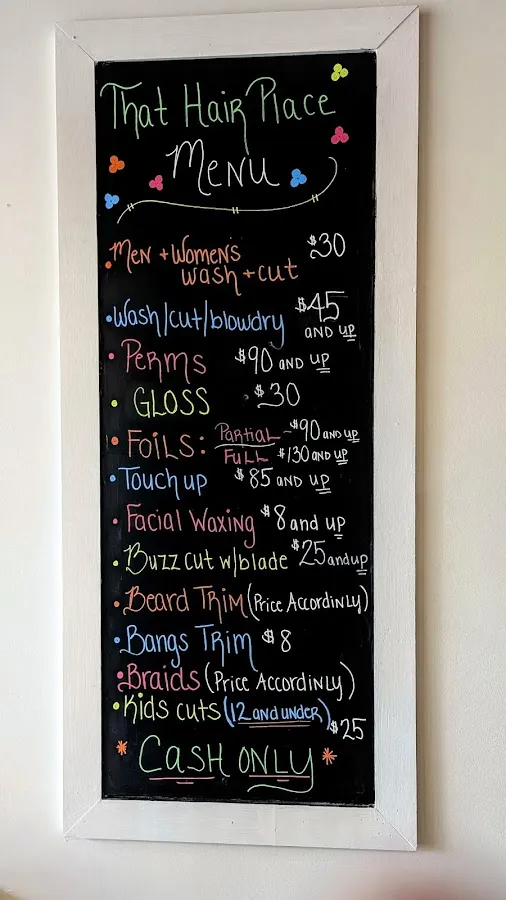 That Hair Place
Menu
• Men + Women's $30
wash + cut
• Wash/cut/blowdry $45
and up
• Perms $90 and up
• Gloss $30
• Foils: Partial - $90 and up
Full $130 and up
• Touch up $85 and up
• Facial Waxing $8 and up
• Buzz cut w/blade $25 and up
• Beard Trim (Price Accordinly)
• Bangs Trim $8
• Braids (Price Accordinly)
• Kids cuts (12 and under) $25
* Cash only *